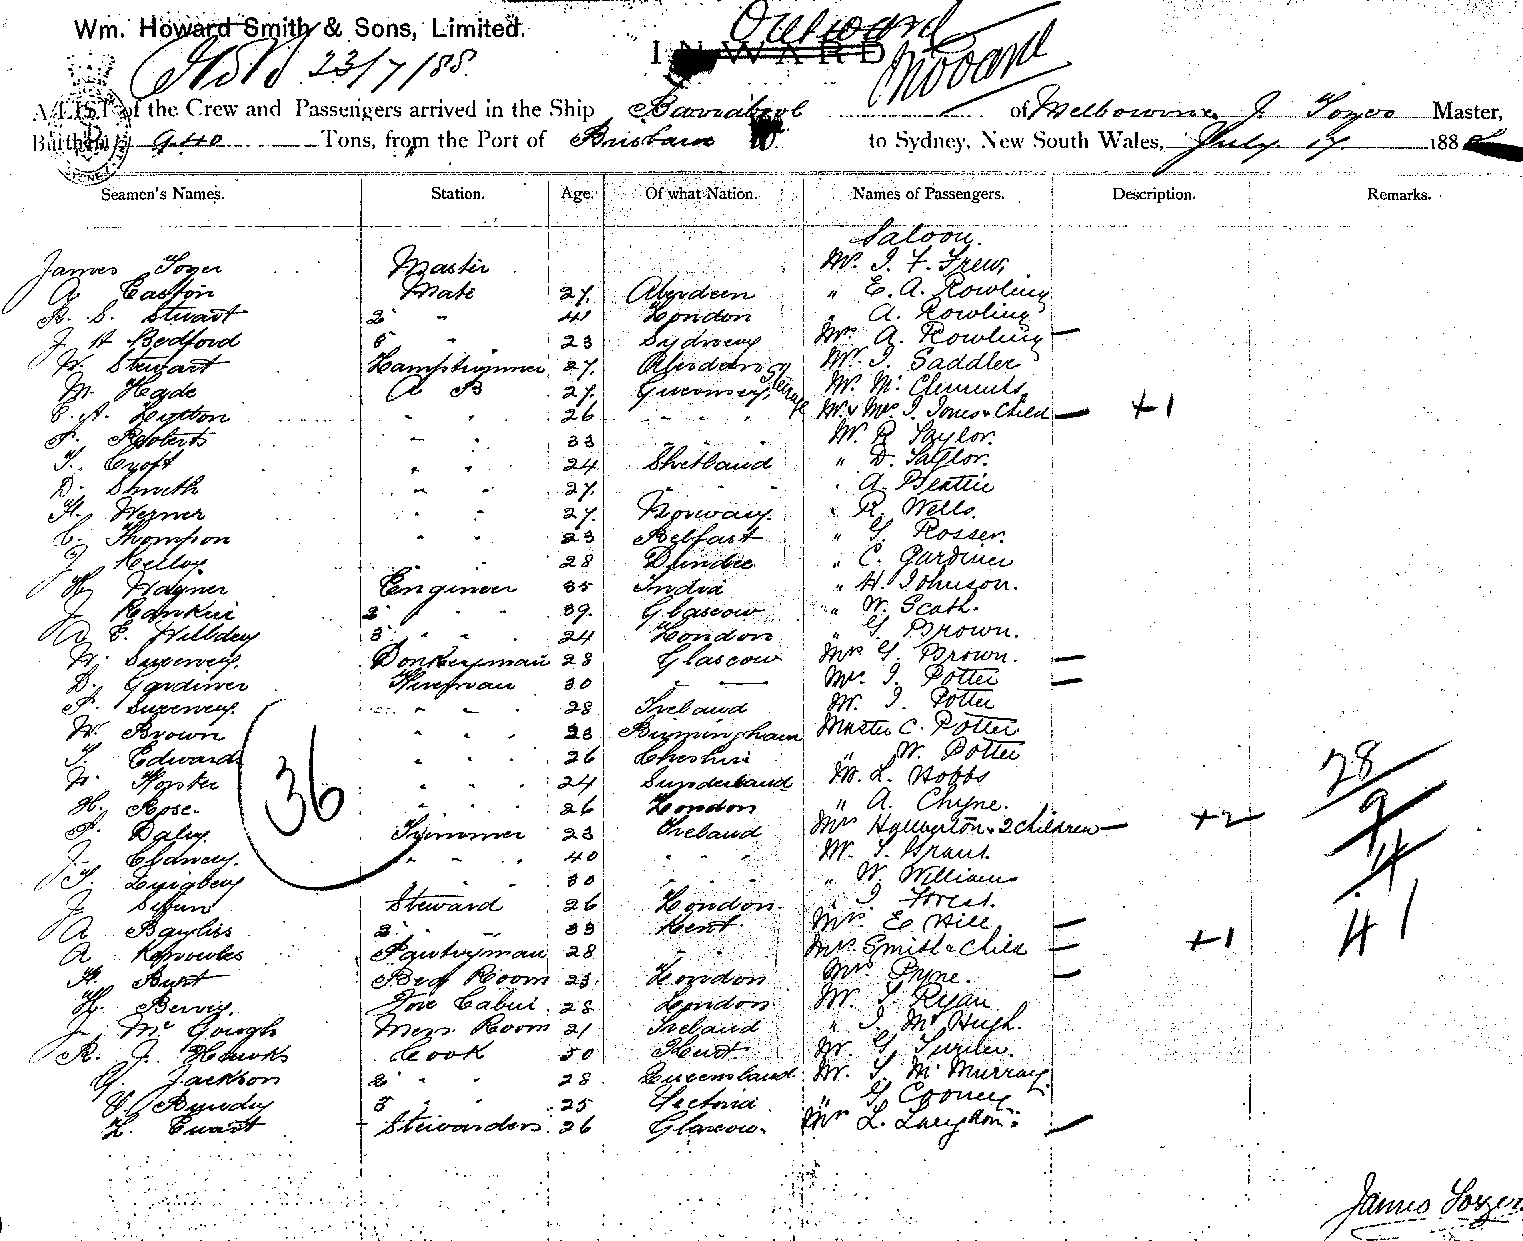 Wm. Howard Smith & Sons, Limited.
Outward
INWARD
23/7/88.
A LIST of the Crew and Passengers arrived in the Ship Barrabool of Melbourne, J. Tozer Master,
Burthen 940 Tons, from the Port of Brisbane to Sydney, New South Wales, July 17 188
Seamen's Names. Station. Age. Of what Nation. Names of Passengers. Description. Remarks.
Saloon.
James Tozer Master Mr. J. F. Frew,
A Easton Mate 27. Aberdeen " E. A. Rowling
R. S. Stuart 2 " 41 London " A. Rowling
J H Bedford 3 " 23 Sydney Mrs A. Rowling —
W. Stewart Lamptrimmer 27. Aberdeen Mr. J. Saddler
M. Hyde A B 27. Guernsey, Steerage Mr. M. Clements
E. A. Hylton " " 26 " " " Mr & Mrs J. Jones & Child — +1
F. Roberts " " 33 Mr. R Taylor.
T. Croft " " 24 Shetland " D. Taylor.
D. Smith " " 27. " A. Beattie
H. Werner " " 27. Norway. " R. Wells.
C. Thompson " " 23 Belfast " G. Rosser.
J Kelloy " " 28 Dundee " C. Gardiner
H. Wagner Engineer 35 India " H. Johnson.
J Rankin 2 " " 39. Glascow " W. Scott.
A E. Willdey 3 " " 24 London " G Brown.
W. Donkeyman 28 Glascow Mrs G Brown. —
D. Gardiner Fireman 30 — — Mrs. J. Potter —
F. " " " 28 Ireland Mr. J. Potter
W. Brown " " " 23 Birmingham Master C. Potter
T. Edwards " " " 26 Cheshire " W. Potter
W. Foster " " " 24 Sunderland Mr. L. Hobbs 28
H. Rose. 36 " " " 26 London " A. Chyne. 9
F. Daley. Trimmer 23 Ireland Mrs Howerton & 2 children — +2 4
J. Clancey. " " " 40 " " " Mr. T. Grant.
T. " " " 30 " " " " W. Williams
J Steward 26 London " J. Forest. 41
A Bayliss 2 " 33 Kent Mrs. E. Hill —
A Knowles Pantryman 28 " " Mrs. Smith & Child — +1
H. Burt Bed Room 23. London Mrs Pyne. —
H. Bervis. Fore Cabin 28 London Mr. T. Ryan
J. McGough Mess Room 21 Ireland " J. McHugh.
R. J. Hawks Cook 50 Kent Mr. G Turner.
G. Jackson 2 " " 28. Queensland Mr. T. McMurray.
V Bundy 3 " " 25 Victoria " G Cooney
L. Ewart Stewardess. 26 Glascow. Mrs L. Langdon. —
James Tozer